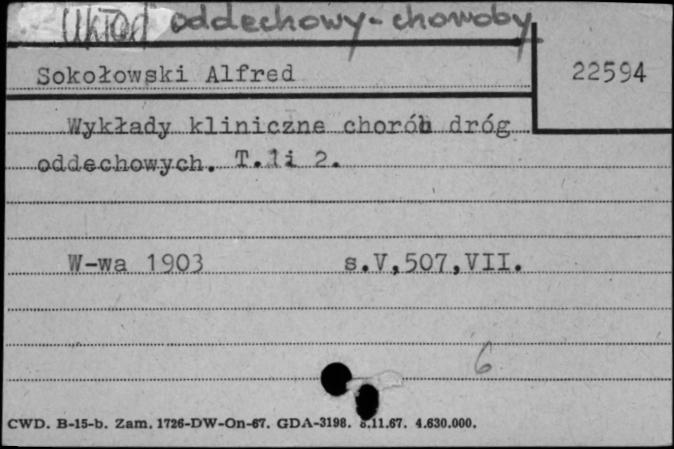 Układ oddechowy-choroby
Sokołowski Alfred
22594
Wykłady kliniczne chorób dróg
oddechowych. T.1i 2.
W-wa 1903 s.V,507,VII.
6
CWD. B-15-b. Zam. 1726-DW-On-67. GDA-3198. 8.11.67. 4.630.000.